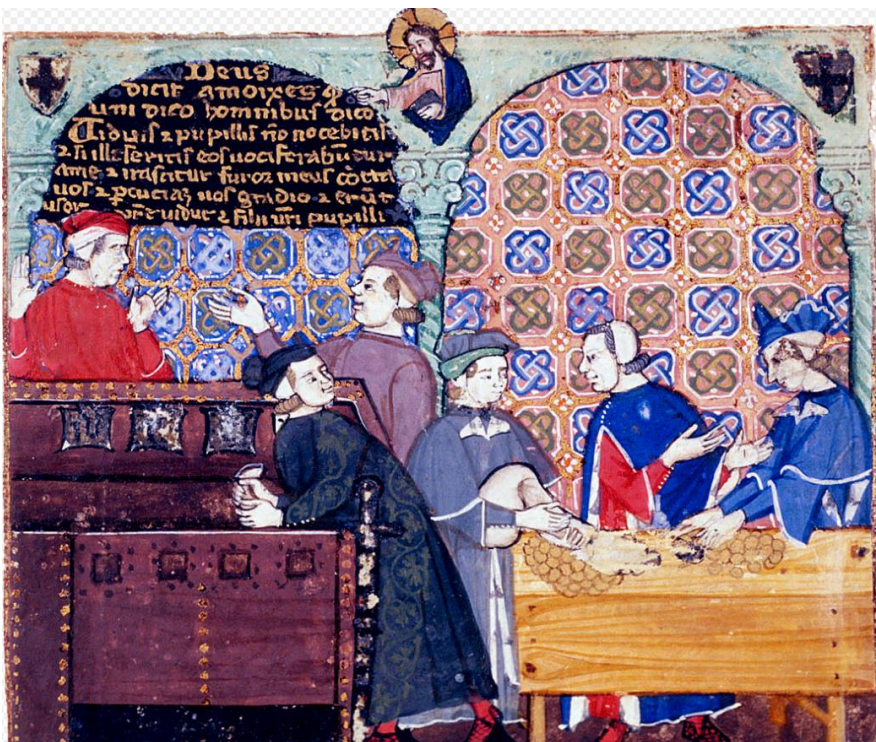 Deus
dicit amoixes q
uni dico hominibus dico
Viduis ⁊ pupillis nō nocebitis
⁊ si illeseritis eos uociferabūtur
ame ⁊ irascitur furor meus cōtra
uos ⁊ ꝑcuciaʒ uos gladio ⁊ erūt
vr̄e vidue ⁊ filii vr̄i pupilli